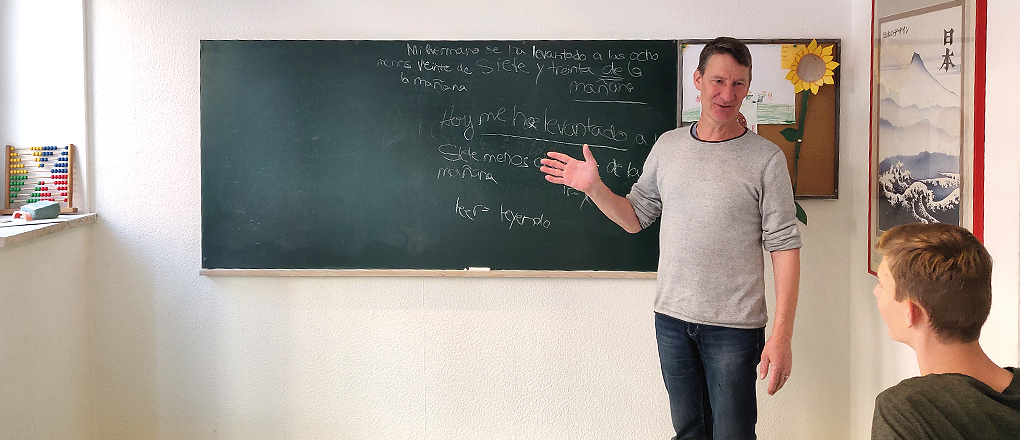 Mi hermano se ha levantado a las ocho
menos veinte de siete y treinta de la
la mañana mañana
Hoy me he levantado a l
Siete menos de la
mañana
leer= leyendo
日本のデザイン
日本